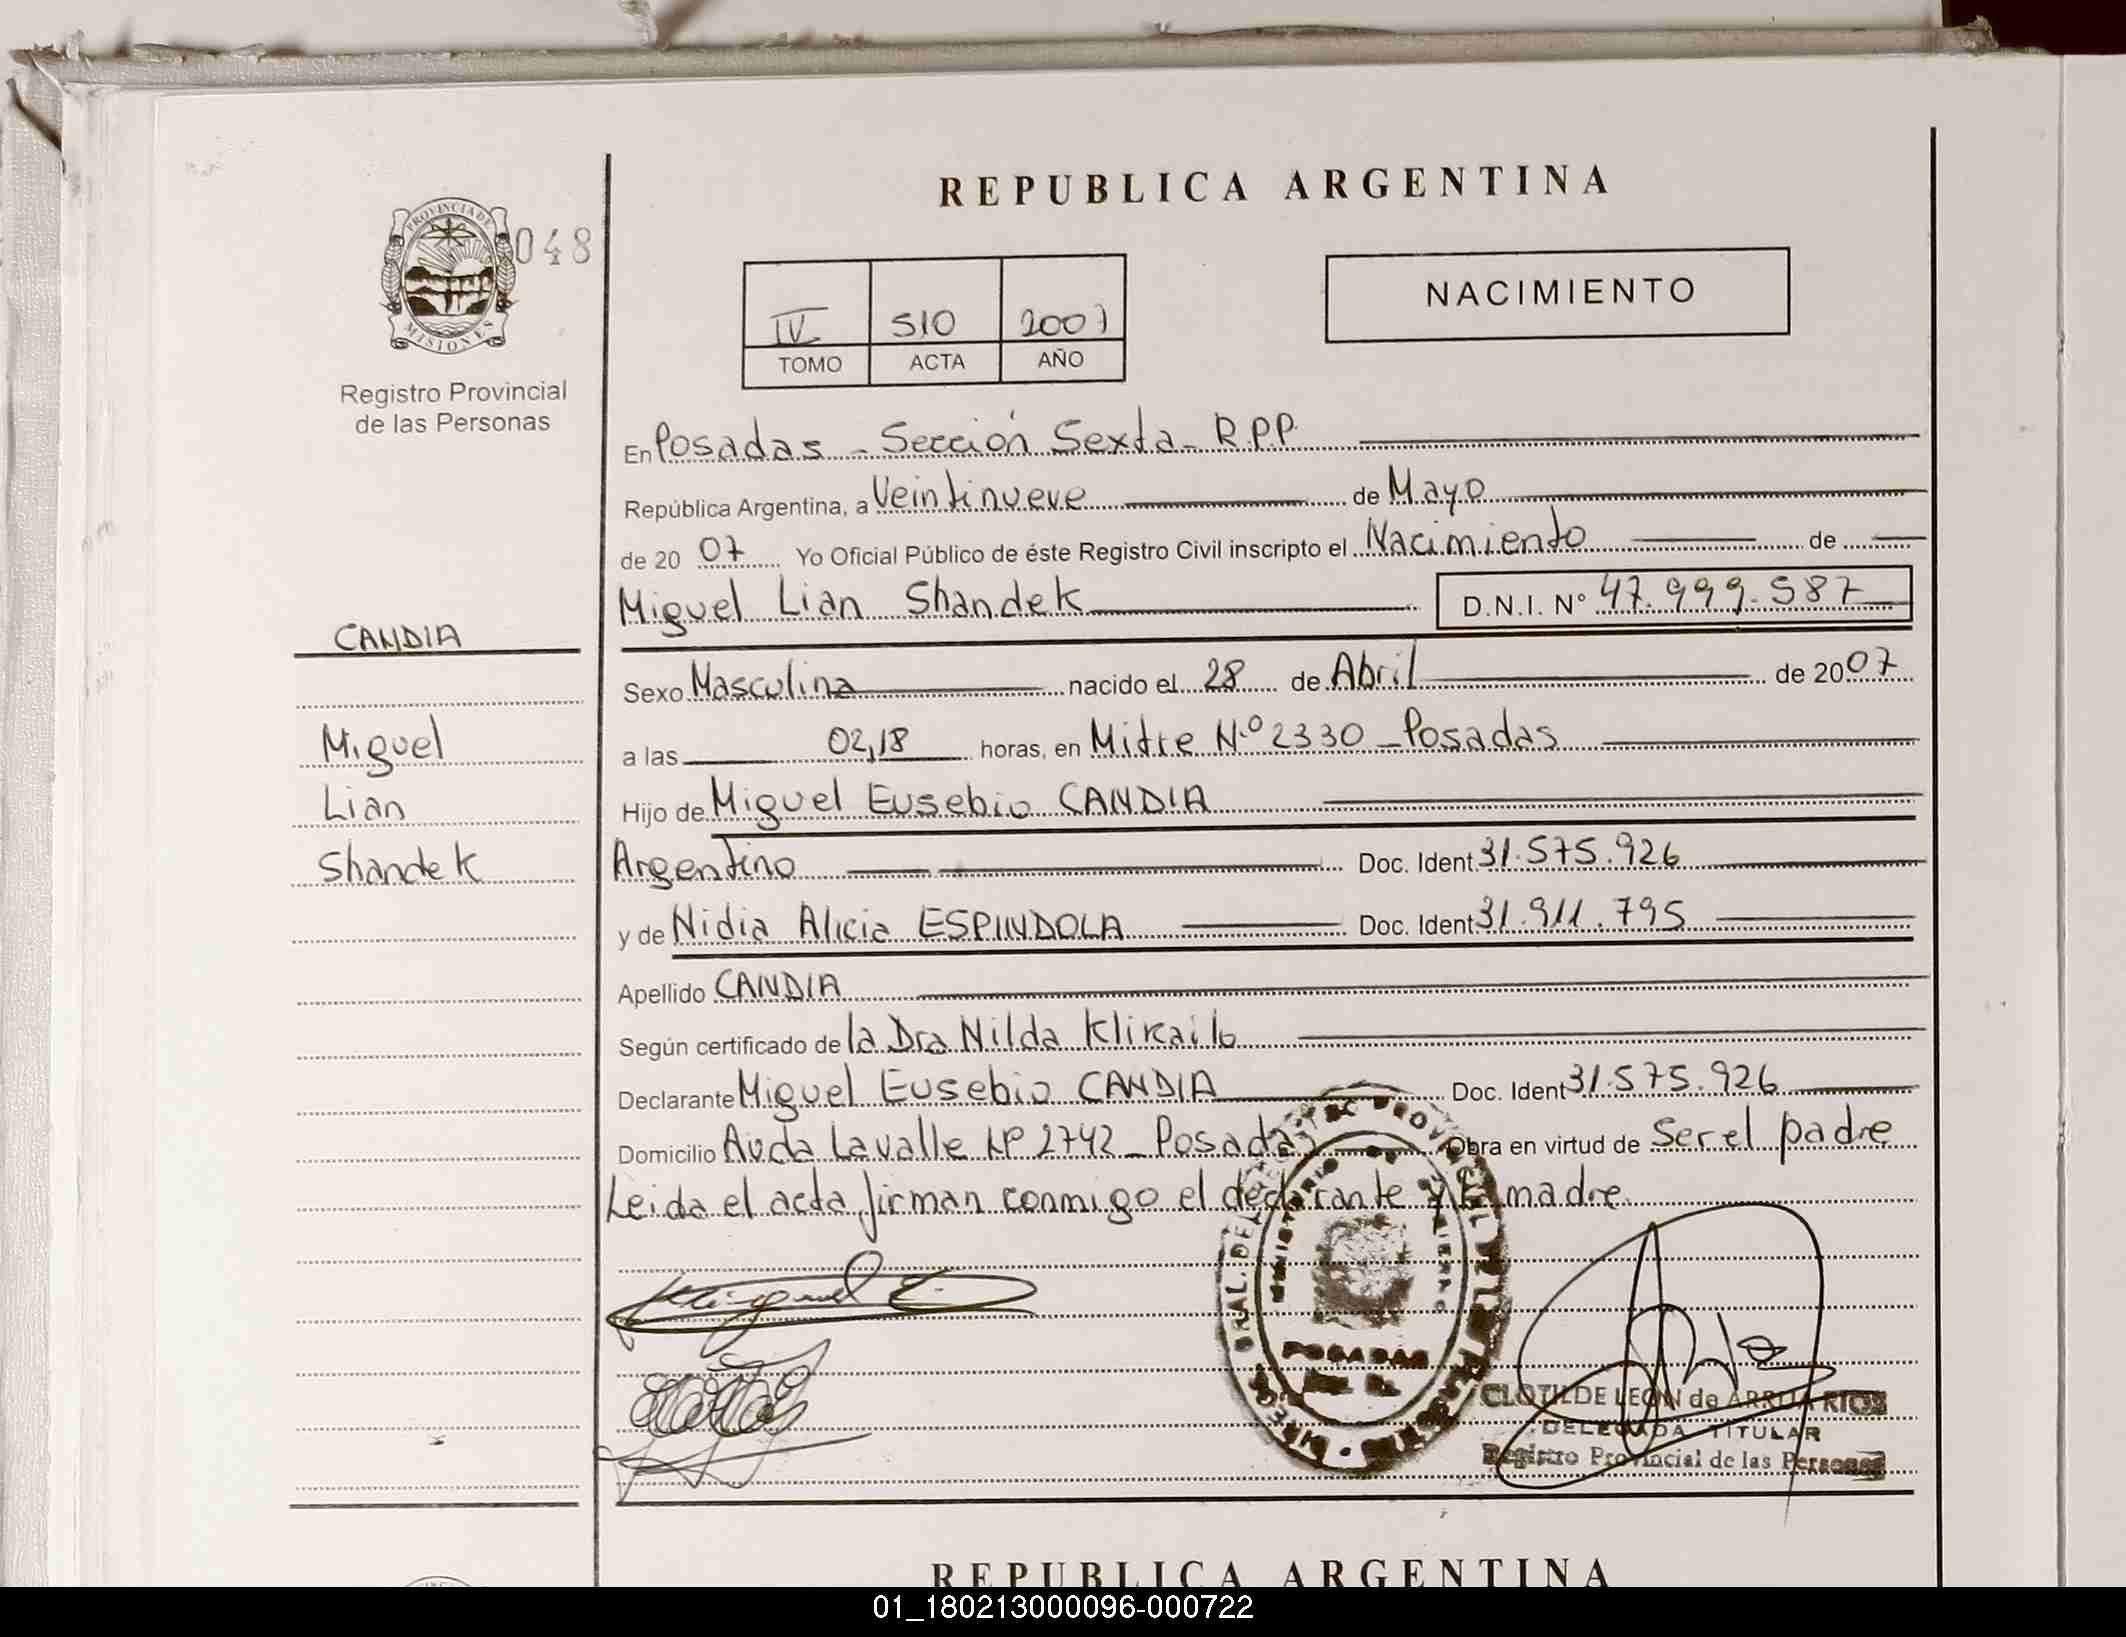 REPUBLICA ARGENTINA
PROVINCIA DE
MISIONES
048
Registro Provincial
de las Personas
IV 510 2007
TOMO ACTA AÑO
NACIMIENTO
En Posadas - Sección Sexta - R.P.P.
República Argentina, a Veintinueve de Mayo
de 20 07 Yo Oficial Público de éste Registro Civil inscripto el Nacimiento de
Miguel Lian Shandek D.N.I. N° 47.999.587
CANDIA
Sexo Masculina nacido el 28 de Abril de 20 07
Miguel
a las 02,18 horas, en Mitre N.º 2330 - Posadas
Lian
Hijo de Miguel Eusebio CANDIA
Shandek
Argentino Doc. Ident. 31.575.926
y de Nidia Alicia ESPINDOLA Doc. Ident 31.911.795
Apellido CANDIA
Según certificado de la Dra Nilda
Declarante Miguel Eusebio CANDIA Doc. Ident 31.575.926
Domicilio Avda Lavalle 2742 - Posadas Obra en virtud de Ser el padre
Leida el acta firman conmigo el declarante y la madre
POSADAS
CLOTILDE LEON de
DELEGADA TITULAR
Registro Provincial de las Personas
REPUBLICA ARGENTINA
01_180213000096-000722